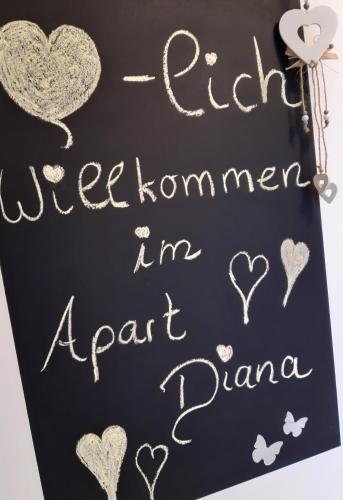 ♥-lich
Willkommen
im
Apart
Diana